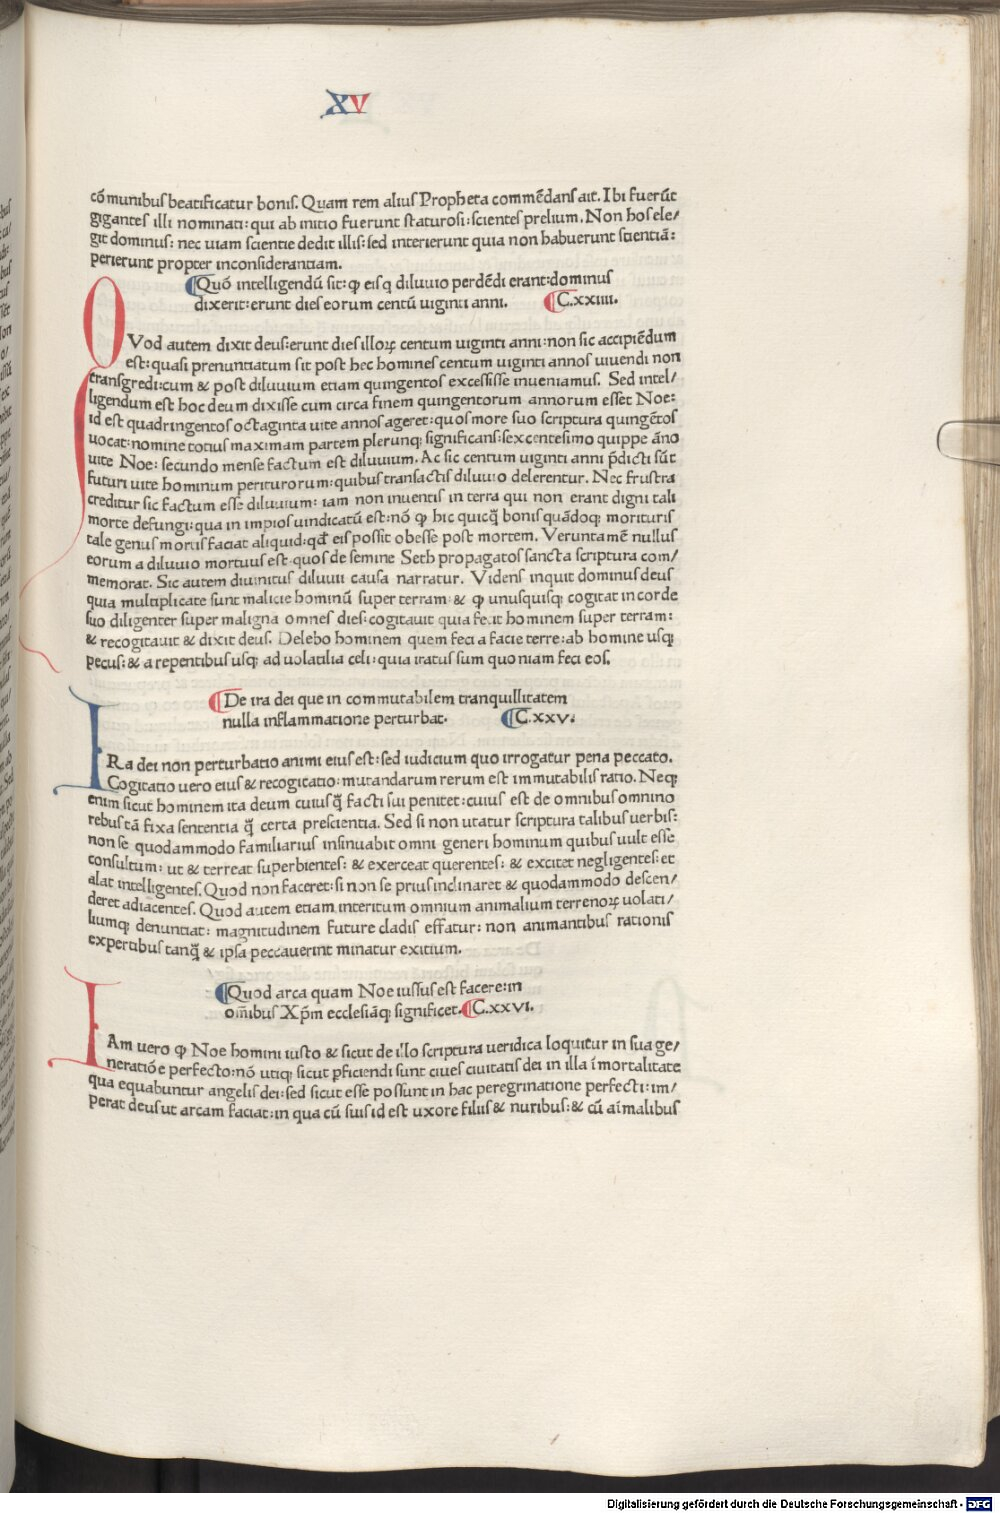 XV
cōmunibus beatificatur bonis. Quam rem alius Propheta commēdans ait. Ibi fuerūt
gigantes illi nominati: qui ab initio fuerunt staturosi: scientes prelium. Non hos ele/
git dominus: nec uiam scientie dedit illis: sed interierunt quia non habuerunt scientiā:
perierunt propter inconsiderantiam.
Quō intelligendū sit: ꝙ eis q̄ diluuio perdēdi erant: dominus
dixerit: erunt dies eorum centū uiginti anni. C.xxiiii.
QVod autem dixit deus: erunt dies illoꝝ centum uiginti anni: non sic accipiēdum
est: quasi prenuntiatum sit post hec homines centum uiginti annos uiuendi non
transgredi: cum & post diluuium etiam quingentos excessisse inueniamus. Sed intel/
ligendum est hoc deum dixisse cum circa finem quingentorum annorum esset Noe:
id est quadringentos octaginta uite annos ageret: quos more suo scriptura quingētos
uocat: nomine totius maximam partem plerunqꝫ significans: sexcentesimo quippe āno
uite Noe: secundo mense factum est diluuium. Ac sic centum uiginti anni p̄dicti sūt
futuri uite hominum periturorum: quibus transactis diluuio delerentur. Nec frustra
creditur sic factum esse diluuium: iam non inuentis in terra qui non erant digni tali
morte defungi: qua in impios uindicatū est: nō ꝙ hic quicq̄ bonis quādoqꝫ morituris
tale genus mortis faciat aliquid: qđ eis possit obesse post mortem. Veruntamē nullus
eorum a diluuio mortuus est: quos de semine Seth propagatos sancta scriptura com/
memorat. Sic autem diuinitus diluuii causa narratur. Videns inquit dominus deus
quia multiplicate sunt malicie hominū super terram: & ꝙ unusquisqꝫ cogitat in corde
suo diligenter super maligna omnes dies: cogitauit quia fecit hominem super terram:
& recogitauit & dixit deus. Delebo hominem quem feci a facie terre: ab homine usqꝫ
pecus: & a repentibus usqꝫ ad uolatilia celi: quia iratus sum quoniam feci eos.
De ira dei que in commutabilem tranquillitatem
nulla inflammatione perturbat. C.xxv.
IRa dei non perturbatio animi eius est: sed iudicium quo irrogatur pena peccato.
Cogitatio uero eius & recogitatio: mutandarum rerum est immutabilis ratio. Neqꝫ
enim sicut hominem ita deum cuiusq̄ facti sui penitet: cuius est de omnibus omnino
rebus tā fixa sententia q̄ certa prescientia. Sed si non utatur scriptura talibus uerbis:
non se quodammodo familiarius insinuabit omni generi hominum quibus uult esse
consultum: ut & terreat superbientes: & exerceat querentes: & excitet negligentes: et
alat intelligentes. Quod non faceret: si non se prius inclinaret & quodammodo descen/
deret adiacentes. Quod autem etiam interitum omnium animalium terrenoꝝ uolati/
liumqꝫ denuntiat: magnitudinem future cladis effatur: non animantibus rationis
expertibus tanq̄ & ipsa peccauerint minatur exitium.
Quod arca quam Noe iussus est facere: in
om̄ibus Xp̄m ecclesiāqꝫ significet. C.xxvi.
IAm uero ꝙ Noe homini iusto & sicut de illo scriptura ueridica loquitur in sua ge/
neratiōe perfecto: nō utiqꝫ sicut ꝑficiendi sunt ciues ciuitatis dei in illa īmortalitate
qua equabuntur angelis dei: sed sicut esse possunt in hac peregrinatione perfecti: im/
perat deus ut arcam faciat: in qua cū suis id est uxore filiis & nuribus: & cū aīmalibus
Digitalisierung gefördert durch die Deutsche Forschungsgemeinschaft - DFG